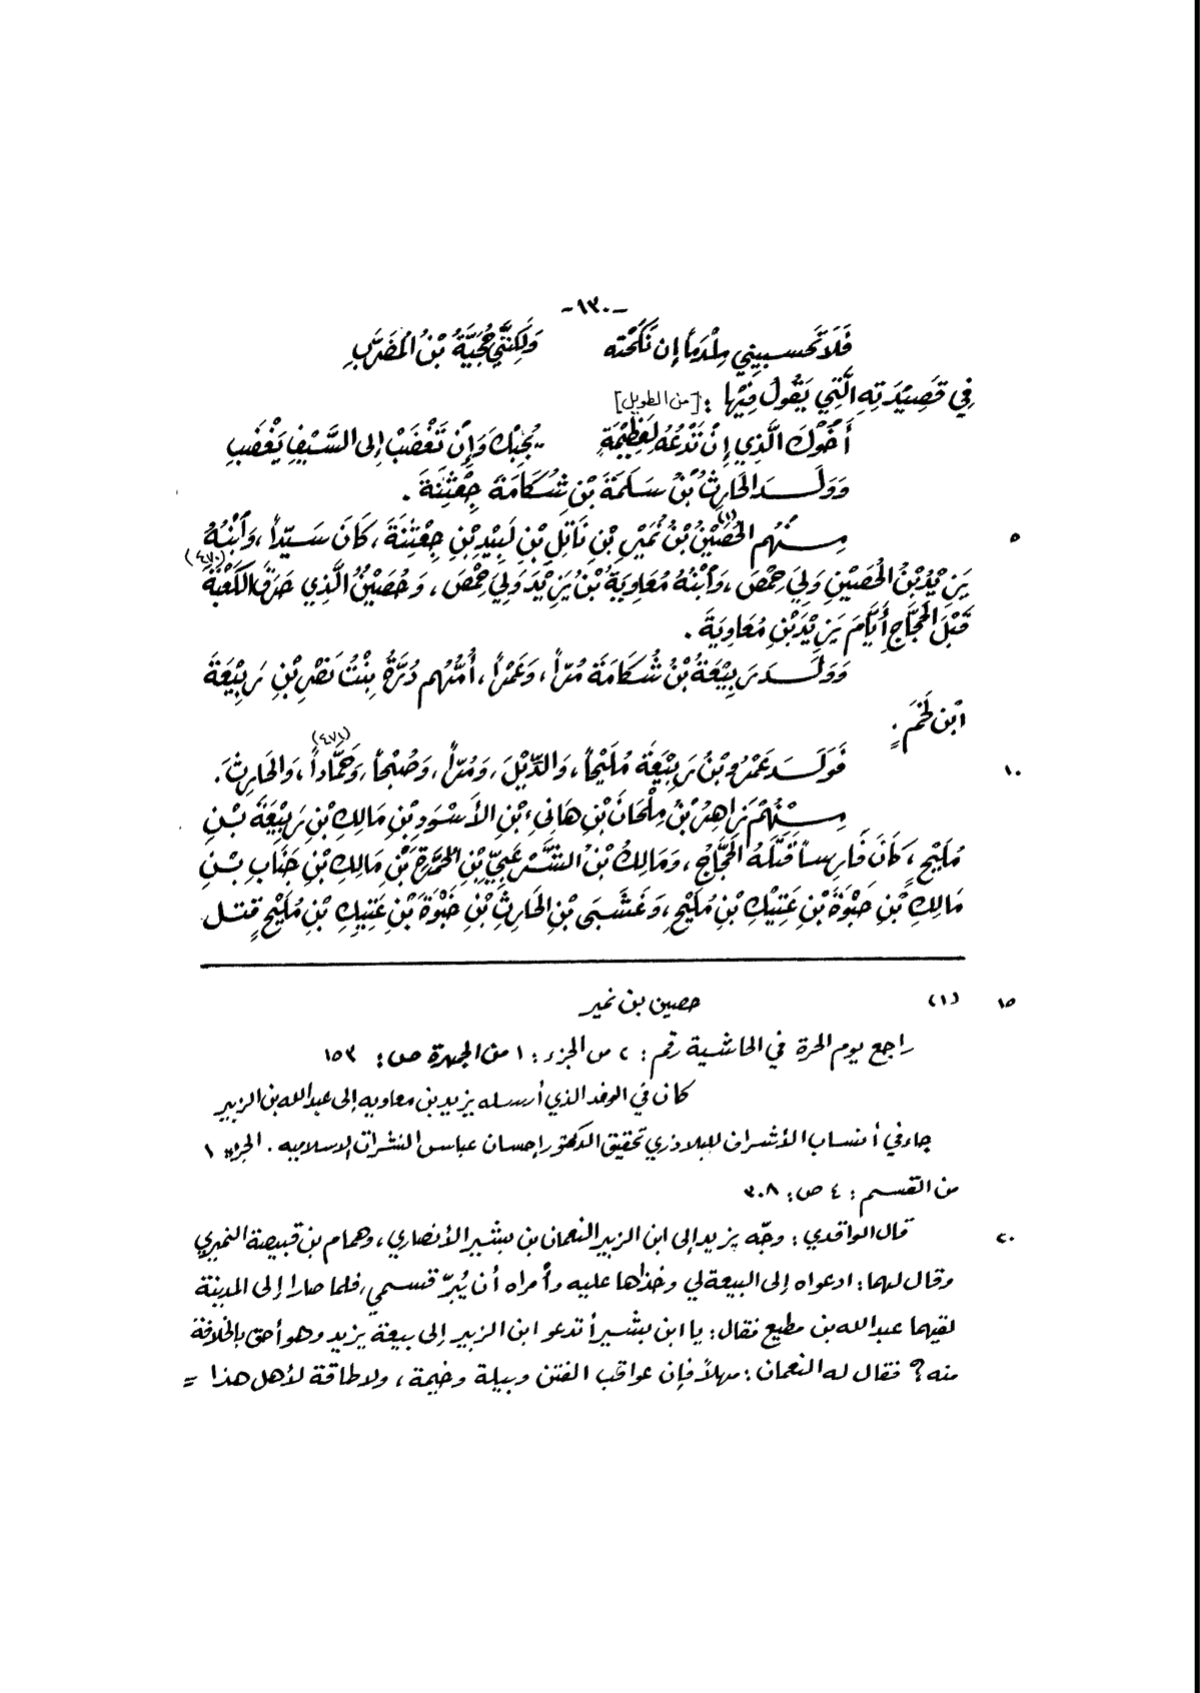 -١٣٠-
فَلَا تَحسبِيني مِلْدَمًا إن نَكَحْتِه وَلَكِنَّنِي حُجَيَّةُ بْنُ المُضَرَّبِ
فِي قَصِيْدَتِهِ الَّتِي يَقُولُ فِيْهَا : [من الطويل]
أَخُوْكَ الَّذِي إِنْ تَدْعُهُ لِعَظِيْمَةٍ يُجِبْكَ وَإِنْ تَغْضَبْ إلى السَّيْفِ يَغْضَبِ
وَوَلَـدَ الحَارِثُ بْنُ سَلَمَةَ بْنِ شُكَامَةَ جِعْثِنَةَ .
مِـنْهُم الحُصَيْنُ(١) بْنُ نُمَيْرِ بْنِ نَاتِلِ بْنِ لَبِيْدِ بْنِ جِعْثِنَةَ ، كَانَ سَـيِّداً ، وَٱبْنُهُ ٥
يَزِيْدُ بْنُ الحُصَيْنِ وَلِيَ حِمْصَ ، وَٱبْنُهُ مُعَاوِيَةُ بْنُ يَزِيْدَ وَلِيَ حِمْصَ ، وَحُصَيْنُ الَّذِي حَرَقَ الكَعْبَةَ (٤٧٠)
قَبْلَ الحَجَّاجِ أَيَّامَ يَزِيْدَ بْنِ مُعَاوِيَةَ .
وَوَلَـدَ رَبِيْعَةُ بْنُ شُكَامَةَ مُرّاً ، وَعَمْراً ، أُمُّهُم دُرَّةُ بِنْتُ نَصْرِ بْنِ رَبِيْعَةَ
ٱبْنِ لَخْمٍ .
فَوَلَـدَ عَمْرُو بْنُ رَبِيْعَةَ مُلَيْحاً ، وَالدِّيْلَ ، وَمُرّاً ، وَصُبْحاً ، وَحَمَّاداً (٤٧١) ، وَالحَارِثَ . ١٠
مِـنْهُمْ زَاهِرُ بْنُ مِلْحَانَ بْنِ هَانِیءِ بْنِ الأَسْوَدِ بْنِ مَالِكِ بْنِ رَبِيْعَةَ بْـنِ
مُلَيْحٍ ، كَانَ فَارِساً قَتَلَهُ الحَجَّاجُ ، وَمَالِكُ بْنُ الشَّرْعَبِيِّ بْنِ المُحَرَّقِ بْنِ مَالِكِ بْنِ جَنَابِ بْـنِ
مَالِكِ بْنِ حَبْوَةَ بْنِ عَتِيْكِ بْنِ مُلَيْحٍ ، وَغَشَّى بْنِ الحَارِثِ بْنِ حَبْوَةَ بْنِ عَتِيكِ بْنِ مُلَيْحٍ قتـل
(١) حصين بن نمير ١٥
راجع يوم الحرة في الحاشية رقم : ٢ من الجزء : ١ من الجمهرة ص : ١٥٣
كان في الوفد الذي أرسله يزيد بن معاويه إلى عبدالله بن الزبير
جاء في أنساب الأشراف للبلاذري تحقيق الدكتور إحسان عباس النشرات الإسلاميه . الجزء ١
من القسم : ٤ ص : ٣٠٨
قال الواقدي : وجّه يزيد إلى ابن الزبير النعمان بن بشير الأنصاري ، وهمام بن قبيصة النميري ٢٠
وقال لهما : ادعواه إلى البيعة لي وخذاها عليه وأمراه أن يُبرّ قسمي ، فلما صارا إلى المدينة
لقيهما عبدالله بن مطيع فقال : يا ابن بشير أتدعو ابن الزبير إلى بيعة يزيد وهو أحق بالخلافة
منه ؟ فقال له النعمان : مهلاً فإن عواقب الفتن وبيلة وخيمة ، ولا طاقة لأهل هذا =